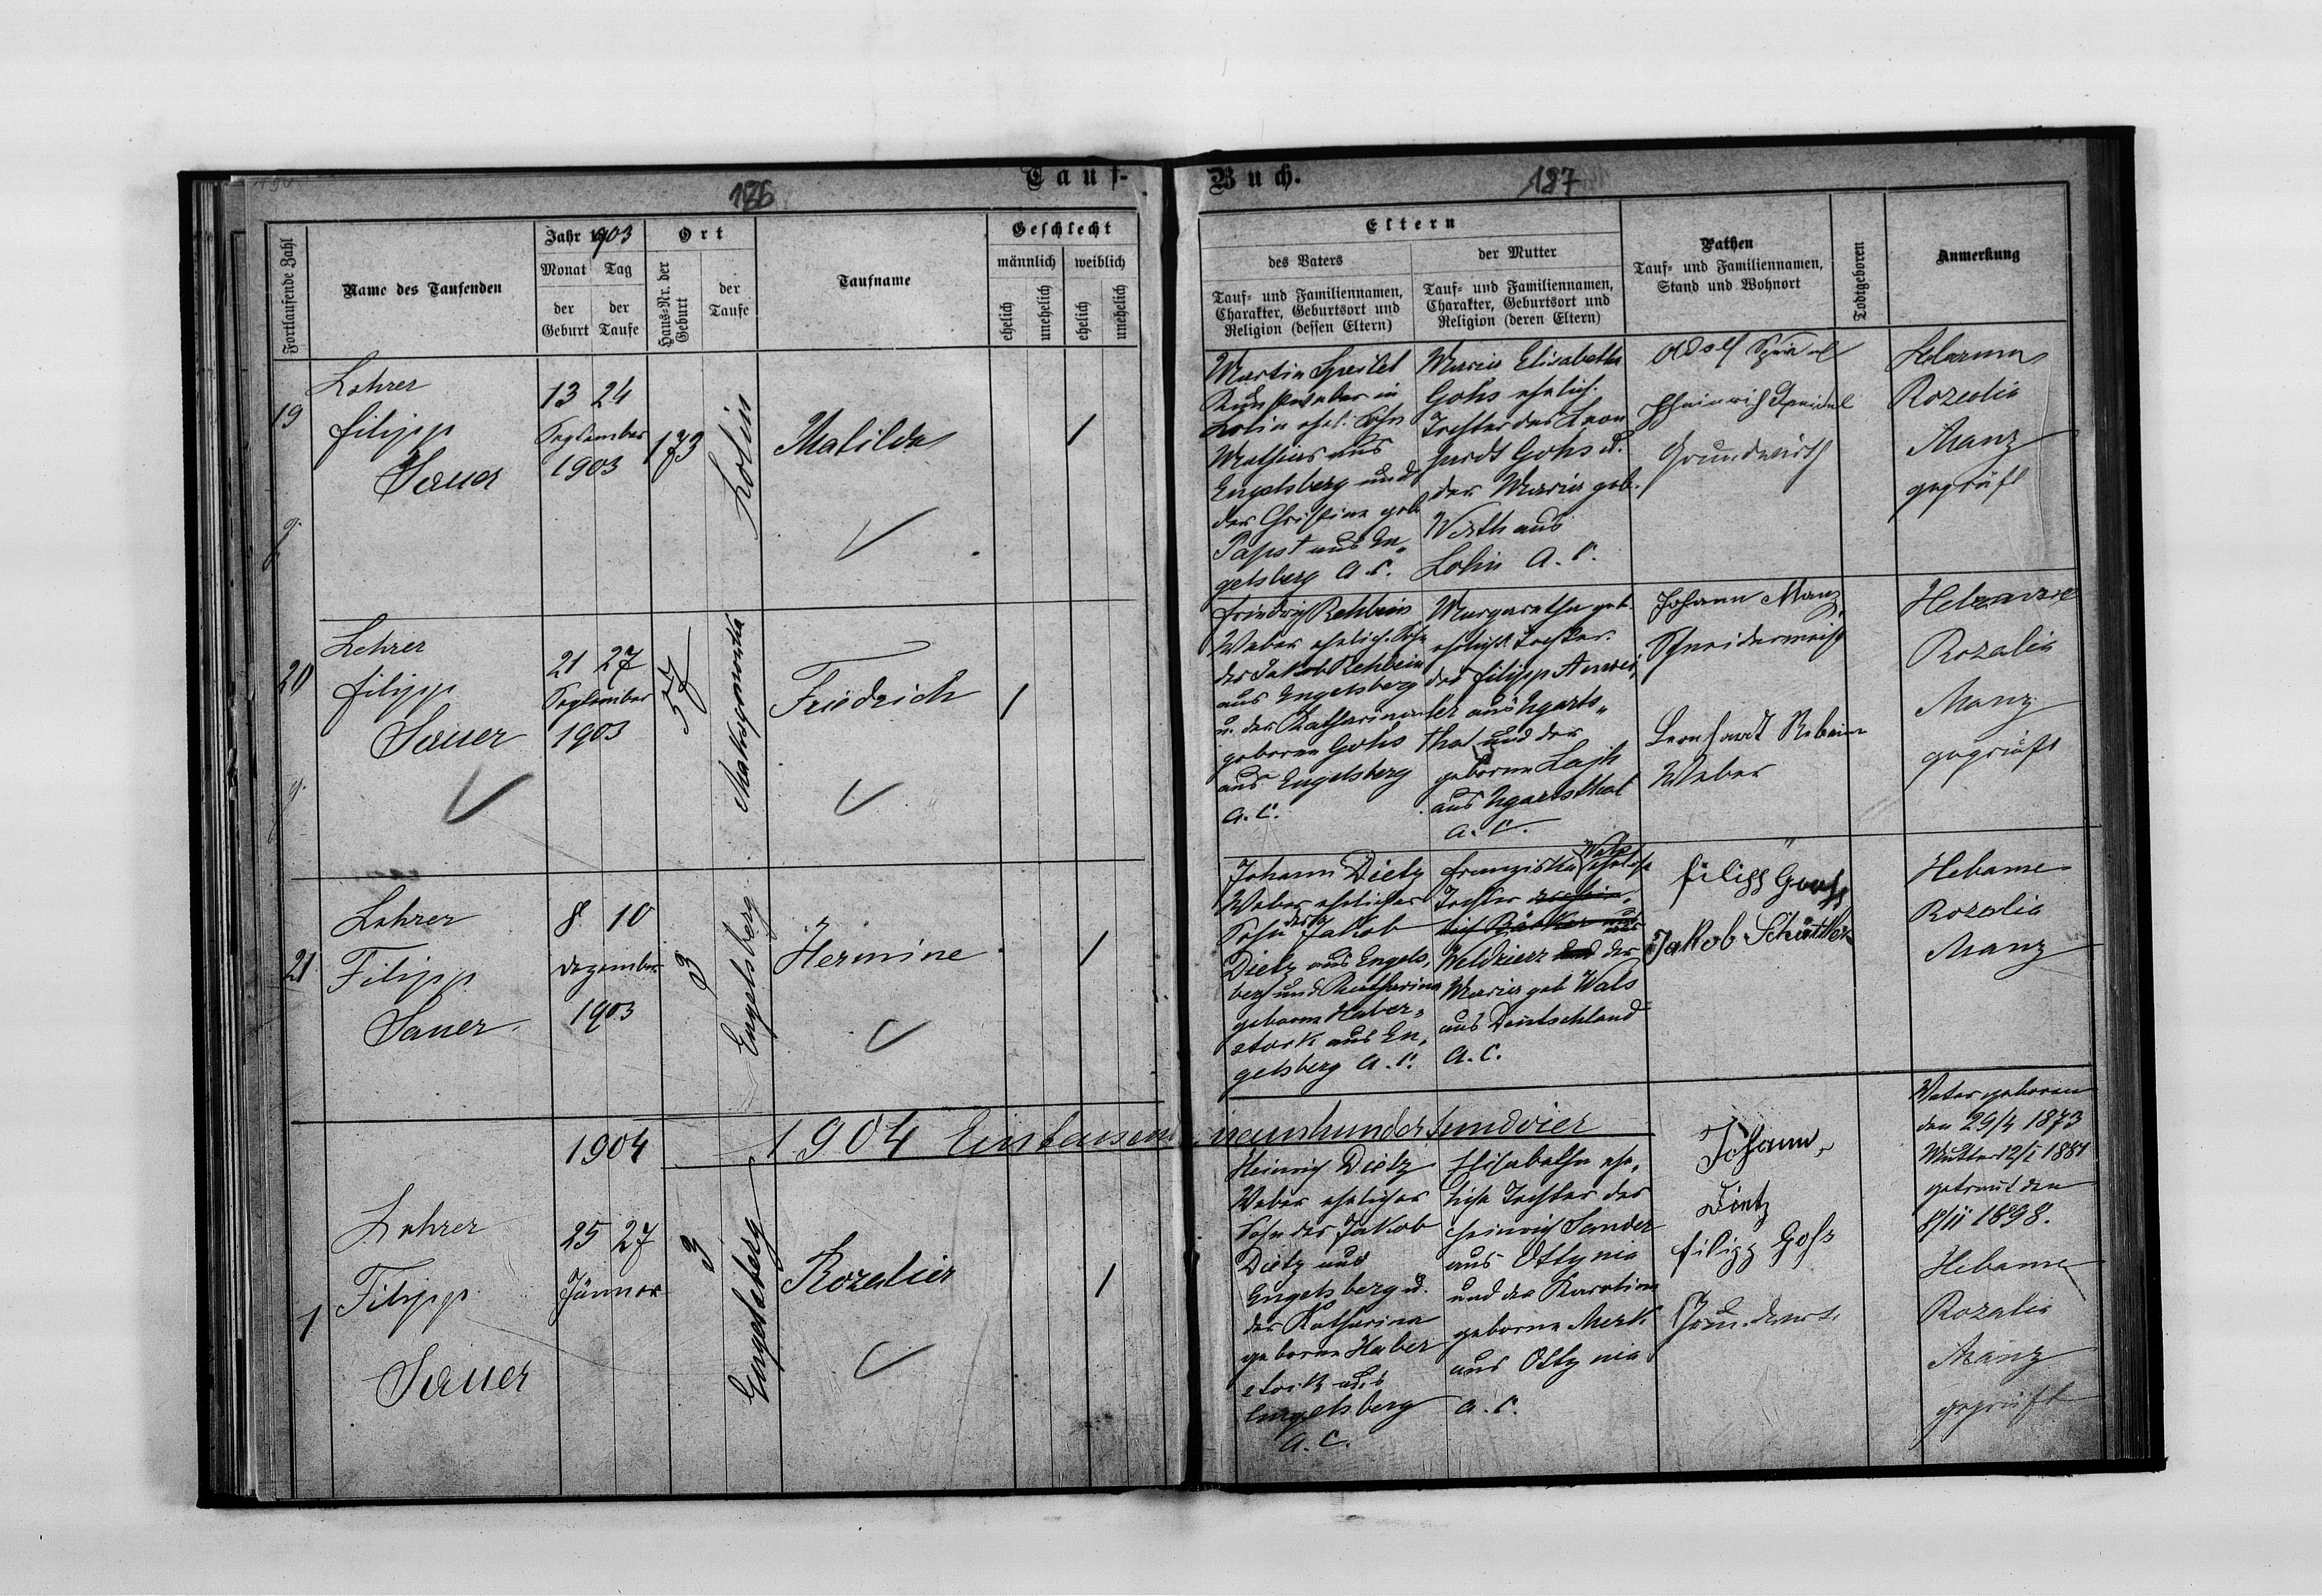 Tauf-
Buch.
176
187
Fortlaufende Zahl
Name des Taufenden
Jahr 1903
Monat
Tag
der
Geburt
der
Taufe
Ort
Haus-Nr. der
Geburt
der
Taufe
Taufname
Geschlecht
männlich
weiblich
ehelich
unehelich
ehelich
unehelich
Eltern
des Vaters
Tauf- und Familiennamen,
Charakter, Geburtsort und
Religion (dessen Eltern)
der Mutter
Tauf- und Familiennamen,
Charakter, Geburtsort und
Religion (deren Eltern)
Pathen
Tauf- und Familiennamen,
Stand und Wohnort
Todtgeboren
Anmerkung
19
Lehrer
Filipp
Sauer
13 24
September
1903
173
Kolin
Matilda
Martin
in
Kolin ehel. Sohn
Mathias aus
Engelsberg und
der Christine geb
Papst aus En„
gelsberg A.C.
Maria Elisabetha
Gohs ehelich.
Tochter des Leon
hardt Gohs u.
der Maria geb.
Wirth aus
A.C.
Adolf
Heinrich Speidel
Grundwirth
Rozalia
Manz
geprüft
20
Lehrer
Filipp
Sauer
21 27
September
1903
57
Friedrich
Friedrich Rehbein
Weber ehelich. Sohn
des Jakob Rehbein
aus Engelsberg
u. der Katharina
geborne Gohs
aus Engelsberg
A.C.
Margaretha geb.
ehelich. Tochter
des Filipp
aus Ugarts„
thal und der
geborne
aus Ugartsthal
A.C.
Johann Manz
Schneidermeist
Leonhardt Rebein
Weber
Hebamme
Rozalia
Manz
geprüft
21
Lehrer
Filipp
Sauer
8 10
Dezember
1903
3
Engelsberg
Hermine
Johann Dietz
Weber ehelicher
Sohn des Jakob
Dietz aus Engels„
berg und Katharina
geborne Haber„
stock aus En„
gelsberg A.C.
Franziska ehelich
Tochter
Weldzierz und der
Maria geb Wals
aus Deutschland
A.C.
Filipp Gohs
Jakob Schüttler
Hebame
Rozalia
Manz
1904
1904 Eintausend neunhundertundvier
1
Lehrer
Filipp
Sauer
25 27
Jänner
3
Engelsberg
Rozalia
Heinrich Dietz
Weber ehelicher
Sohn des Jakob
Dietz aus
Engelsberg u.
der Katharina
geborne Haber
stock aus
Engelsberg
A.C.
Elisabetha ehe„
liche Tochter des
Heinrich Sander
aus Ottynia
und der Karolina
geborne Merk
aus Ottynia
A.C.
Johann
Dietz
Filipp Gohs
Vater geboren
den 29/4 1873
Mutter 12/I 1881
getraut den
8/II 1898.
Hebame
Rozalia
Manz
geprüft